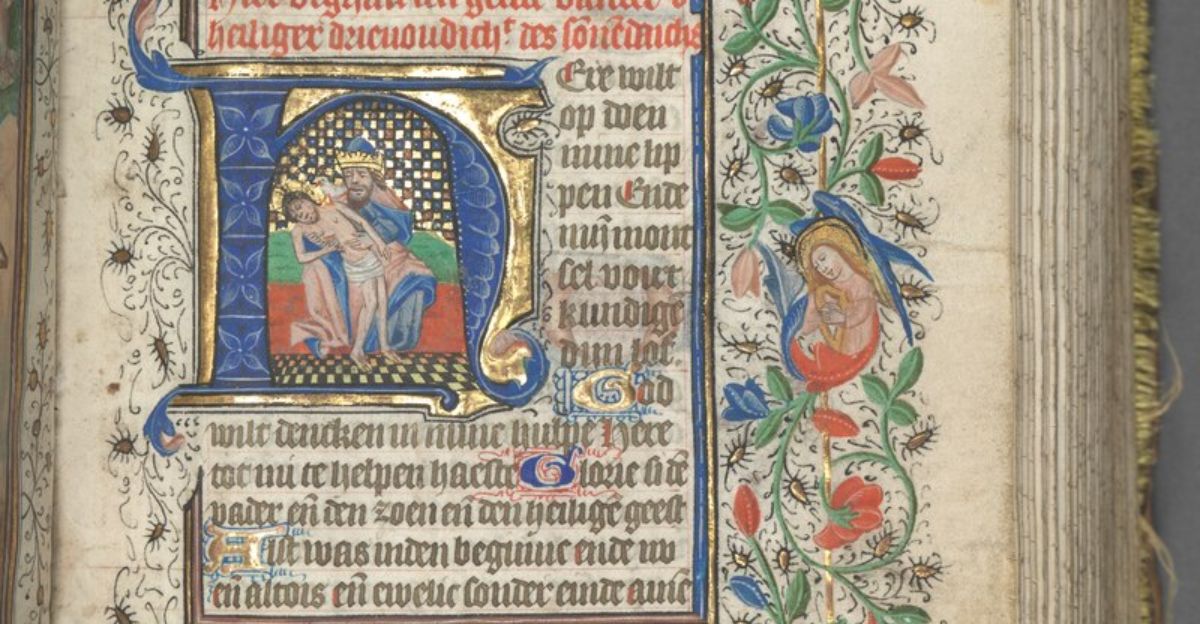 Hier beghinnen die ghetide vander
heiliger drievoudich^t des sōnēdaichs
Ere wilt
op doen
mine lip
pen Ende
mijn mont
sel vour
kundigē
dijn lof
God
wilt dencken in mine hulpe Here
tot mi te helpen haeste Glorie si dē
vader eñ den zoen en den heiligē geest
Alst was inden beginne ende nv
eñ altois eñ ewelic sonder einde amē